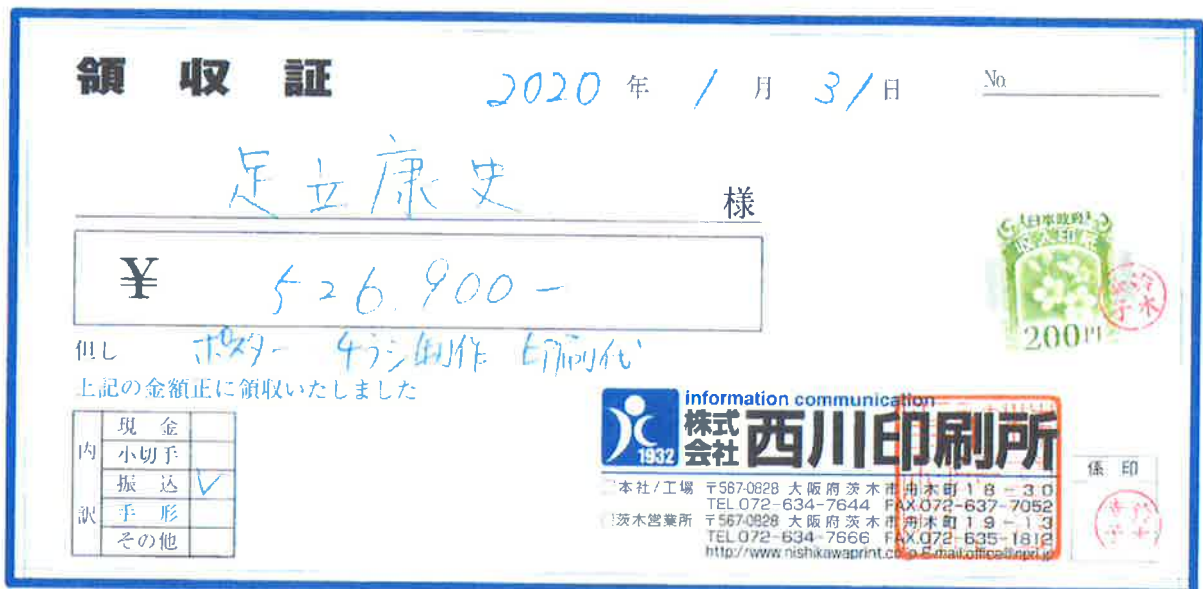 領収証 2020年1月31日 No.
足立康史 様
¥ 526.900-
但し ポスター チラシ制作 印刷代
上記の金額正に領収いたしました
内訳
現金
小切手
振込 ✓
手形
その他
日本政府
収入印紙
200円
information communication
1932 株式会社 西川印刷所
本社/工場 〒567-0828 大阪府茨木市舟木町18-30
TEL.072-634-7644 FAX.072-637-7052
茨木営業所 〒567-0828 大阪府茨木市舟木町19-13
TEL.072-634-7666 FAX.072-635-1812
http://www.nishikawaprint.co.jp E-mail.office@npri.jp
係印